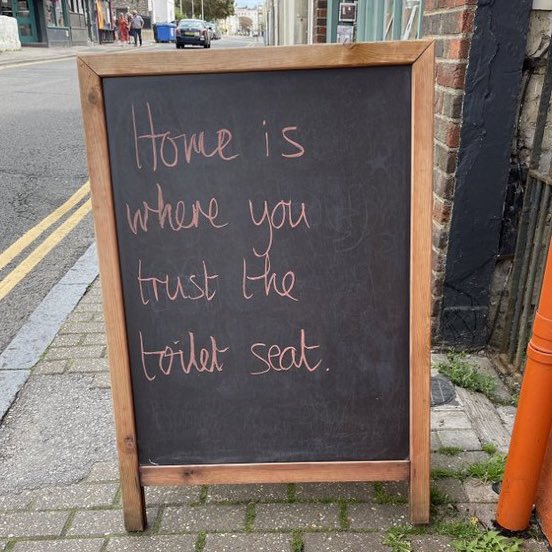 Home is
where you
trust the
toilet seat.